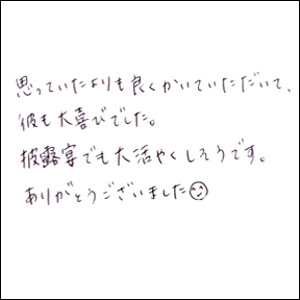 思っていたよりも良くかいていただいて、
彼も大喜びでした。
披露宴でも大活やくしそうです。
ありがとうございました